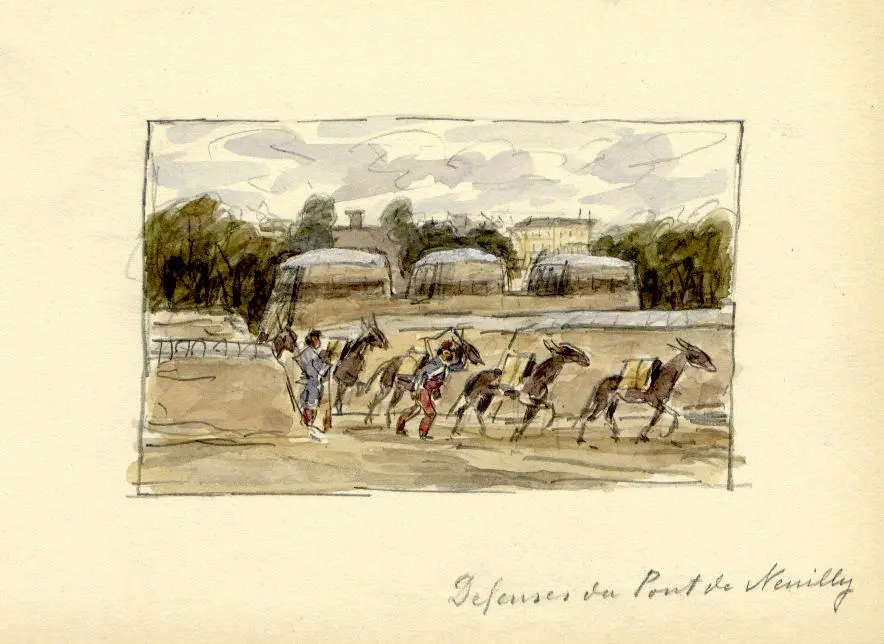 Defenses du Pont de Neuilly